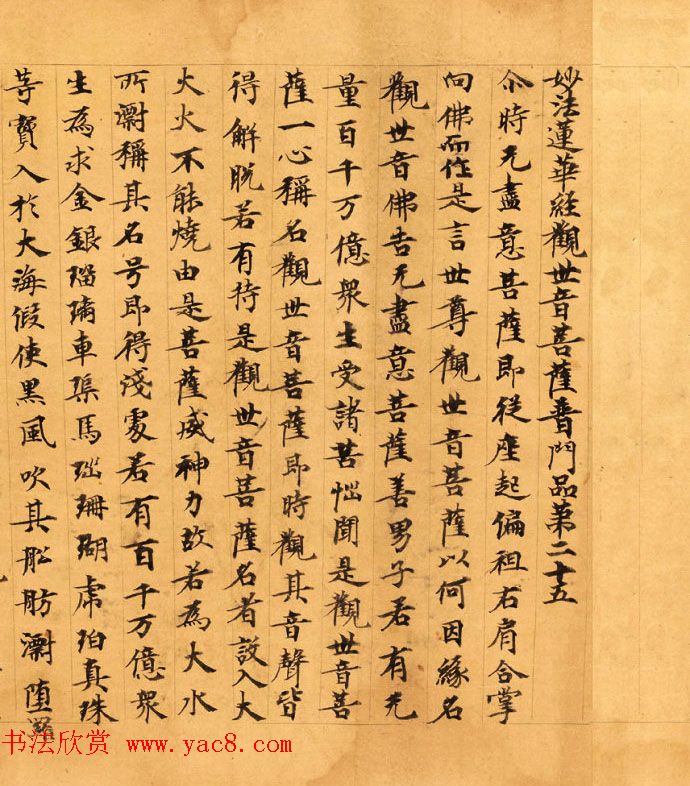 妙法蓮華經觀世音菩薩普門品第二十五
尒時无盡意菩薩即從座起偏袒右肩合掌
向佛而作是言世尊觀世音菩薩以何因緣名
觀世音佛告无盡意菩薩善男子若有无
量百千万億衆生受諸苦惱聞是觀世音菩
薩一心稱名觀世音菩薩即時觀其音聲皆
得解脫若有持是觀世音菩薩名者設入大
火火不能燒由是菩薩威神力故若為大水
所漂稱其名号即得淺處若有百千万億衆
生為求金銀瑠璃車渠馬瑙珊瑚虎珀真珠
等寶入於大海假使黑風吹其船舫漂堕羅
书法欣赏 www.yac8.com